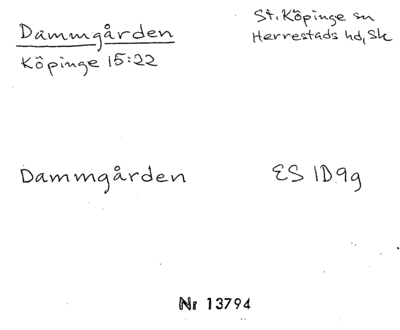 Dammgården
St. Köpinge sn
Herrestads hd, Sk
Köpinge 15:22
Dammgården
ES 1D9g
Nr 13794